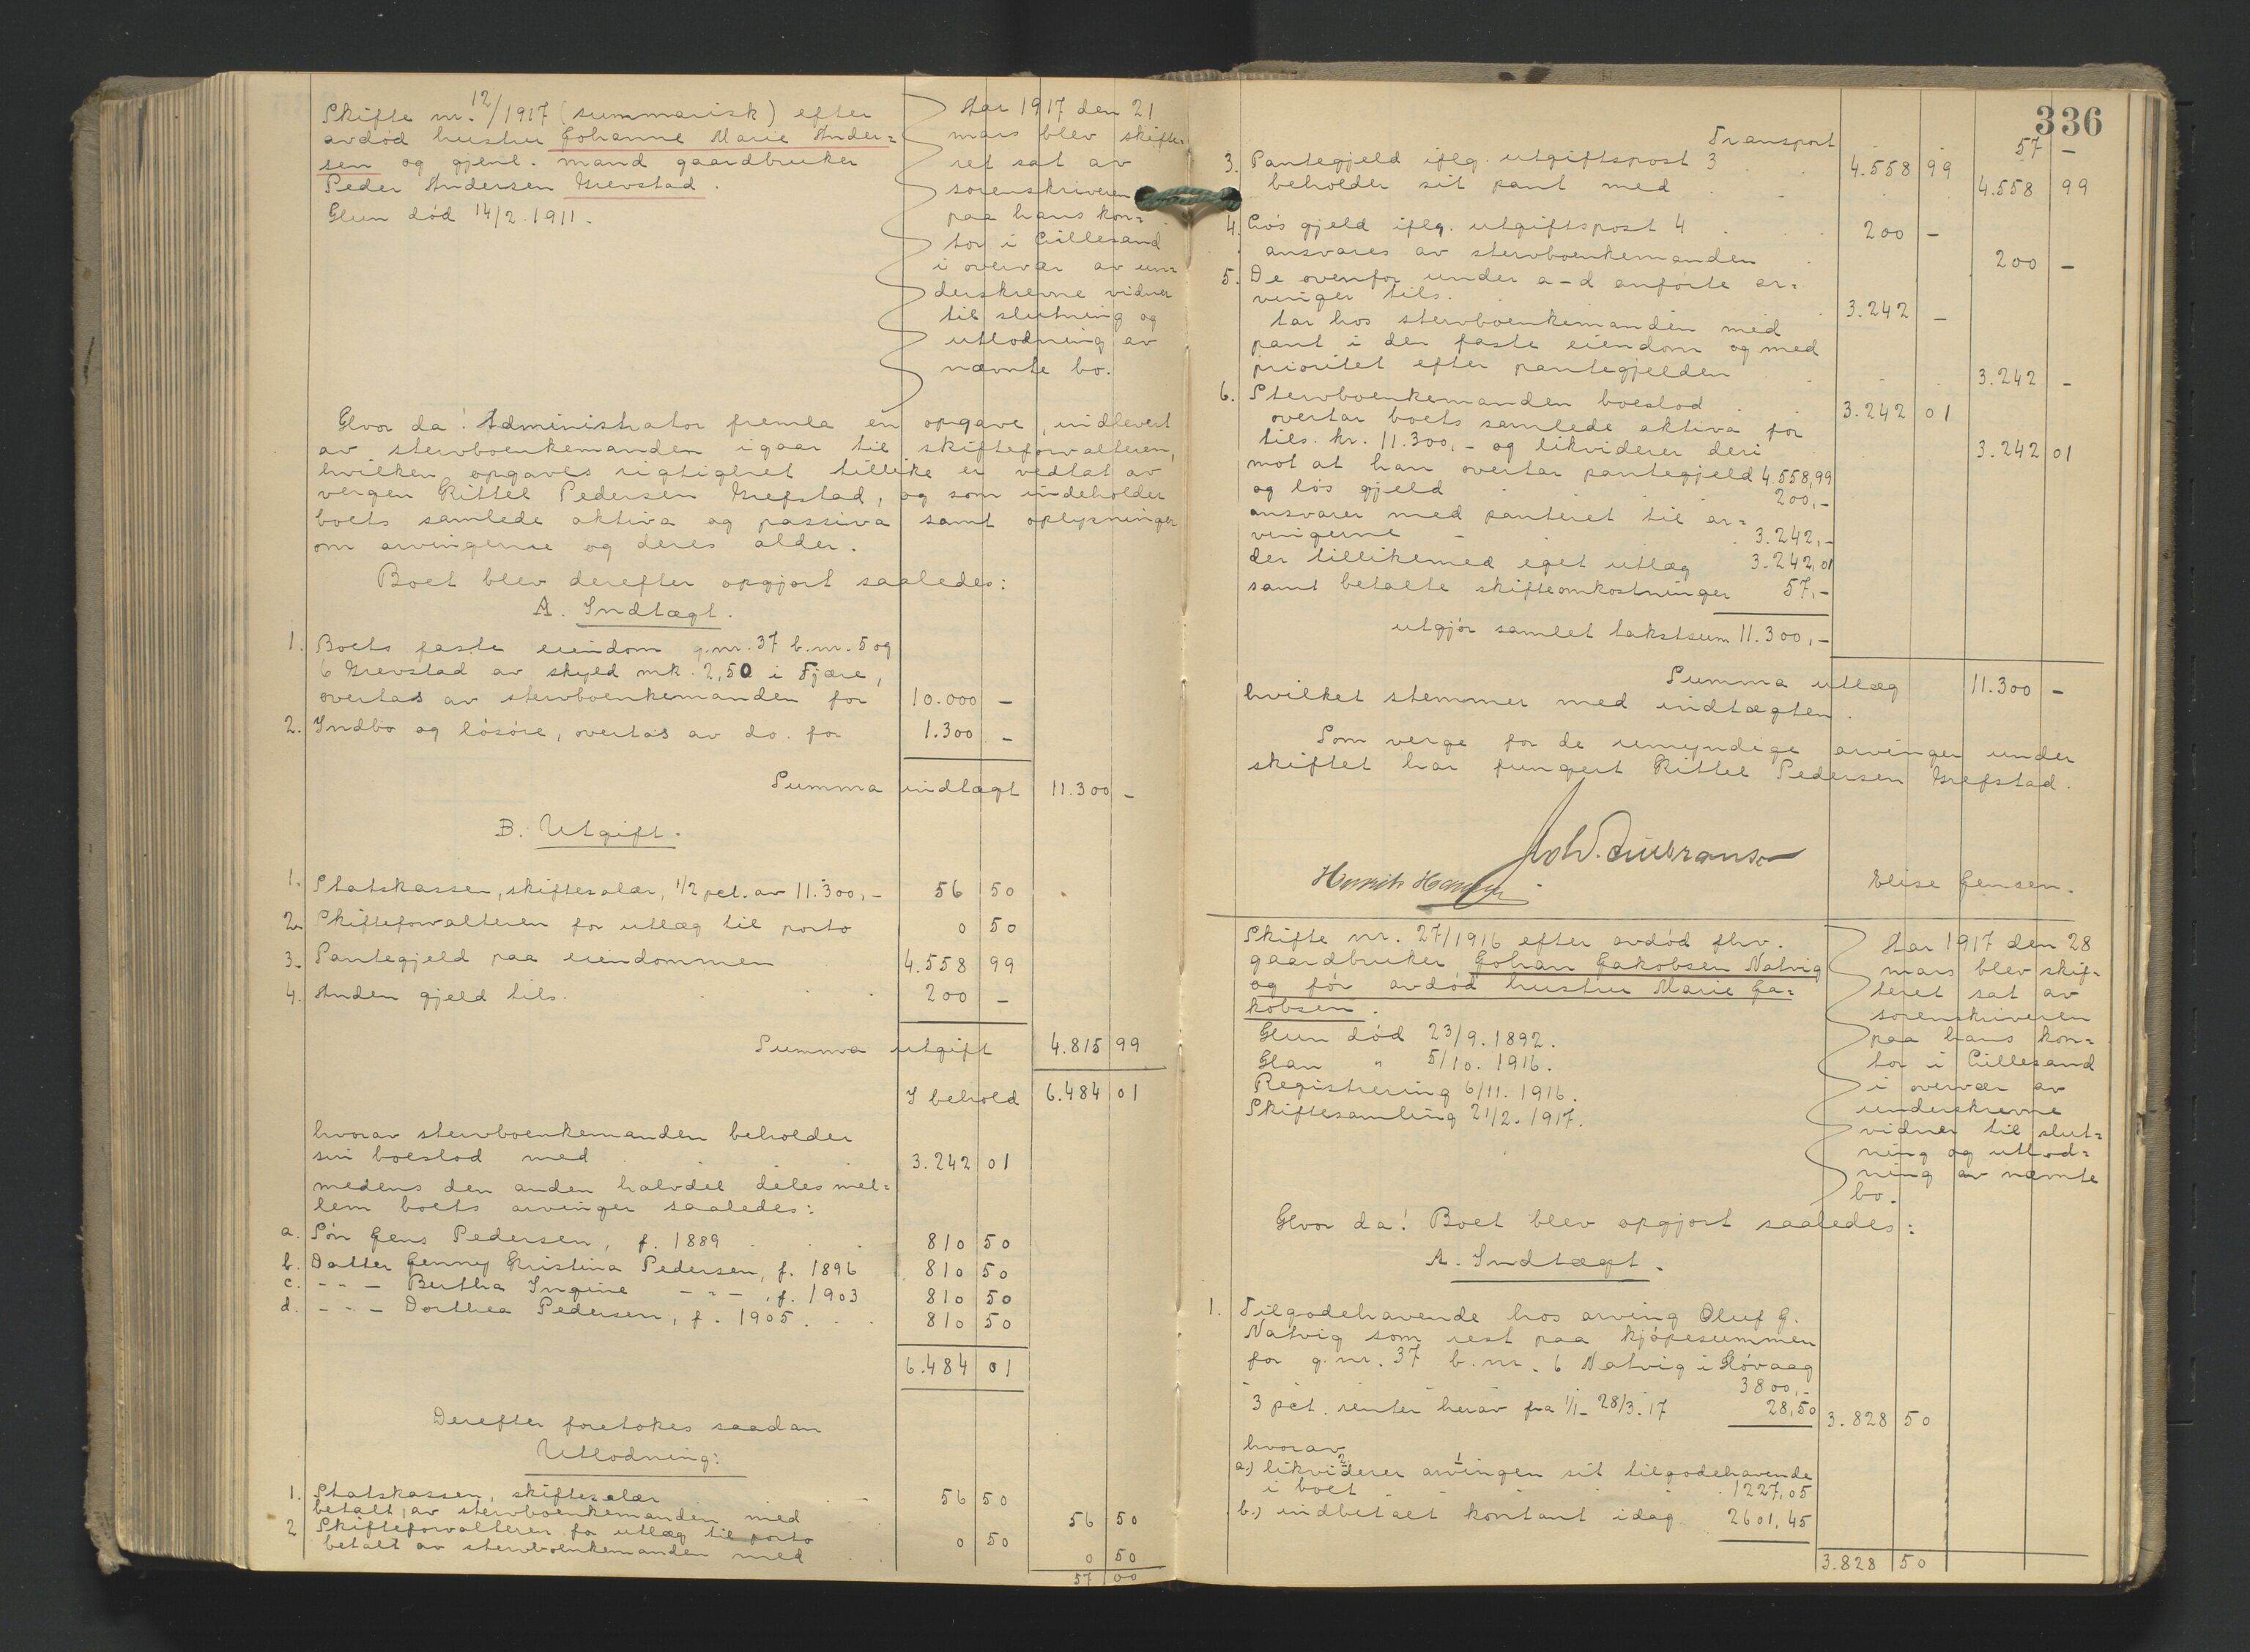 Skifte nr. 12/1917 (summarisk) efter
avdød hustru Johanne Marie Ander=
sen og gjenl. mand gaardbruker
Peder Andersen Grevstad.
Hun død 14/2.1911.
Aar 1917 den 21
mars blev skifte-
ret sat av
sorenskriveren
paa hans kon=
tor i Lillesand
i overvær av un=
derskrevne vidner
til slutning og
utlodning av
nævnte bo.
Hvor da! Administrator fremla en opgave, indlevert
av stervboenkemanden igaar til skifteforvalteren,
hvilken opgaves rigtighet tillike er vedtat av
vergen Kittel Pedersen Grefstad, og som indeholder
boets samlede aktiva og passiva samt oplysninger
om arvingerne og deres alder.
Boet blev derefter opgjort saaledes:
A. Indtægt.
1. Boets faste eiendom g.nr. 37 b.nr. 5 og
6 Grevstad av skyld mk. 2,50 i Fjære,
overtas av stervboenkemanden for 10.000 -
2. Indbo og løsøre, overtas av do. for 1.300 -
Summa indtægt 11.300 -
B. Utgift.
1. Statskassen, skiftesalær, 1/2 pct. av 11.300,- 56 50
2. Skifteforvalteren for utlæg til porto 0 50
3. Pantegjeld paa eiendommen 4.558 99
4. Anden gjeld tils. . . . 200 -
Summa utgift 4.815 99
I behold 6.484 01
hvorav stervboenkemanden beholder
sin boeslod med 3.242 01
medens den anden halvdel deles mel=
lem boets arvinger saaledes:
a. Søn Jens Pedersen, f. 1889 . . . 810 50
b. Datter Jenny Kristina Pedersen, f. 1896 810 50
c. - " - Bertha Ingine - " - , f. 1903 810 50
d. - " - Dorthea Pedersen, f. 1905. . . 810 50
6.484 01
Derefter foretokes saadan
Utlodning:
1. Statskassen, skiftesalær 56 50
betalt av stervboenkemanden med 56 50
2 Skifteforvalteren for utlæg til porto 0 50
betalt av stervboenkemanden med 0 50
57 00
336
Transport 57 -
3. Pantegjeld iflg. utgiftspost 3 . . 4.558 99
beholder sit pant med . . 4.558 99
4. Løs gjeld iflg. utgiftspost 4 . . . 200 -
ansvares av stervboenkemanden . 200 -
5. De ovenfor under a-d anførte ar=
vinger tils. . . . 3.242 -
tar hos stervboenkemanden med
pant i den faste eiendom og med
prioritet efter pantegjelden . . . 3.242 -
6. Stervboenkemanden boeslod . . 3.242 01
overtar boets samlede aktiva for
tils. kr. 11.300,- og likviderer deri 3.242 01
mot at han overtar pantegjeld 4.558,99
og løs gjeld . . 200,-
ansvarer med panteret til ar=
vingerne - . . 3.242,-
der tillikemed eget utlæg 3.242,01
samt betalte skifteomkostninger 57,-
utgjør samlet takstsum 11.300,-
Summa utlæg 11.300 -
hvilket stemmer med indtægten.
Som verge for de umyndige arvinger under
skiftet har fungert Kittel Pedersen Grefstad.
Elise Jensen.
Skifte nr. 27/1916 efter avdød fhv.
gaardbruker Johan Jakobsen Natvig
og før avdød hustru Marie Ja=
kobsen.
Hun død 23/9. 1892.
Han " 5/10. 1916.
Registrering 6/11. 1916.
Skiftesamling 21/2. 1917.
Aar 1917 den 28
mars blev skif=
teret sat av
sorenskriveren
paa hans kon=
tor i Lillesand
i overvær av
underskrevne
vidner til slut=
ning og utlod=
ning av nævnte
bo.
Hvor da! Boet blev opgjort saaledes:
A. Indtægt.
1. Tilgodehavende hos arving Oluf J.
Natvig som rest paa kjøpesummen
for g.nr. 37 b.nr. 6 Natvig i Høvaag
3800,-
3 pct. renter herav fra 1/1- 28/3.17 28,50 3.828 50
hvorav
a.) likviderer 2 arvingen 1 sit tilgodehavende
i boet - - - 1227,05
b.) indbetalt kontant idag 2601,45
3.828 50